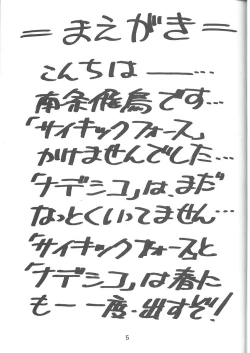 ＝まえがき＝
こんちは ――…
南条飛鳥です…
「サイキックフォース」
かけませんでした…
「ナデシコ」は、まだ
なっとくいってません…
「サイキックフォース」と
「ナデシコ」は春に
もー一度・出すぞ!
5